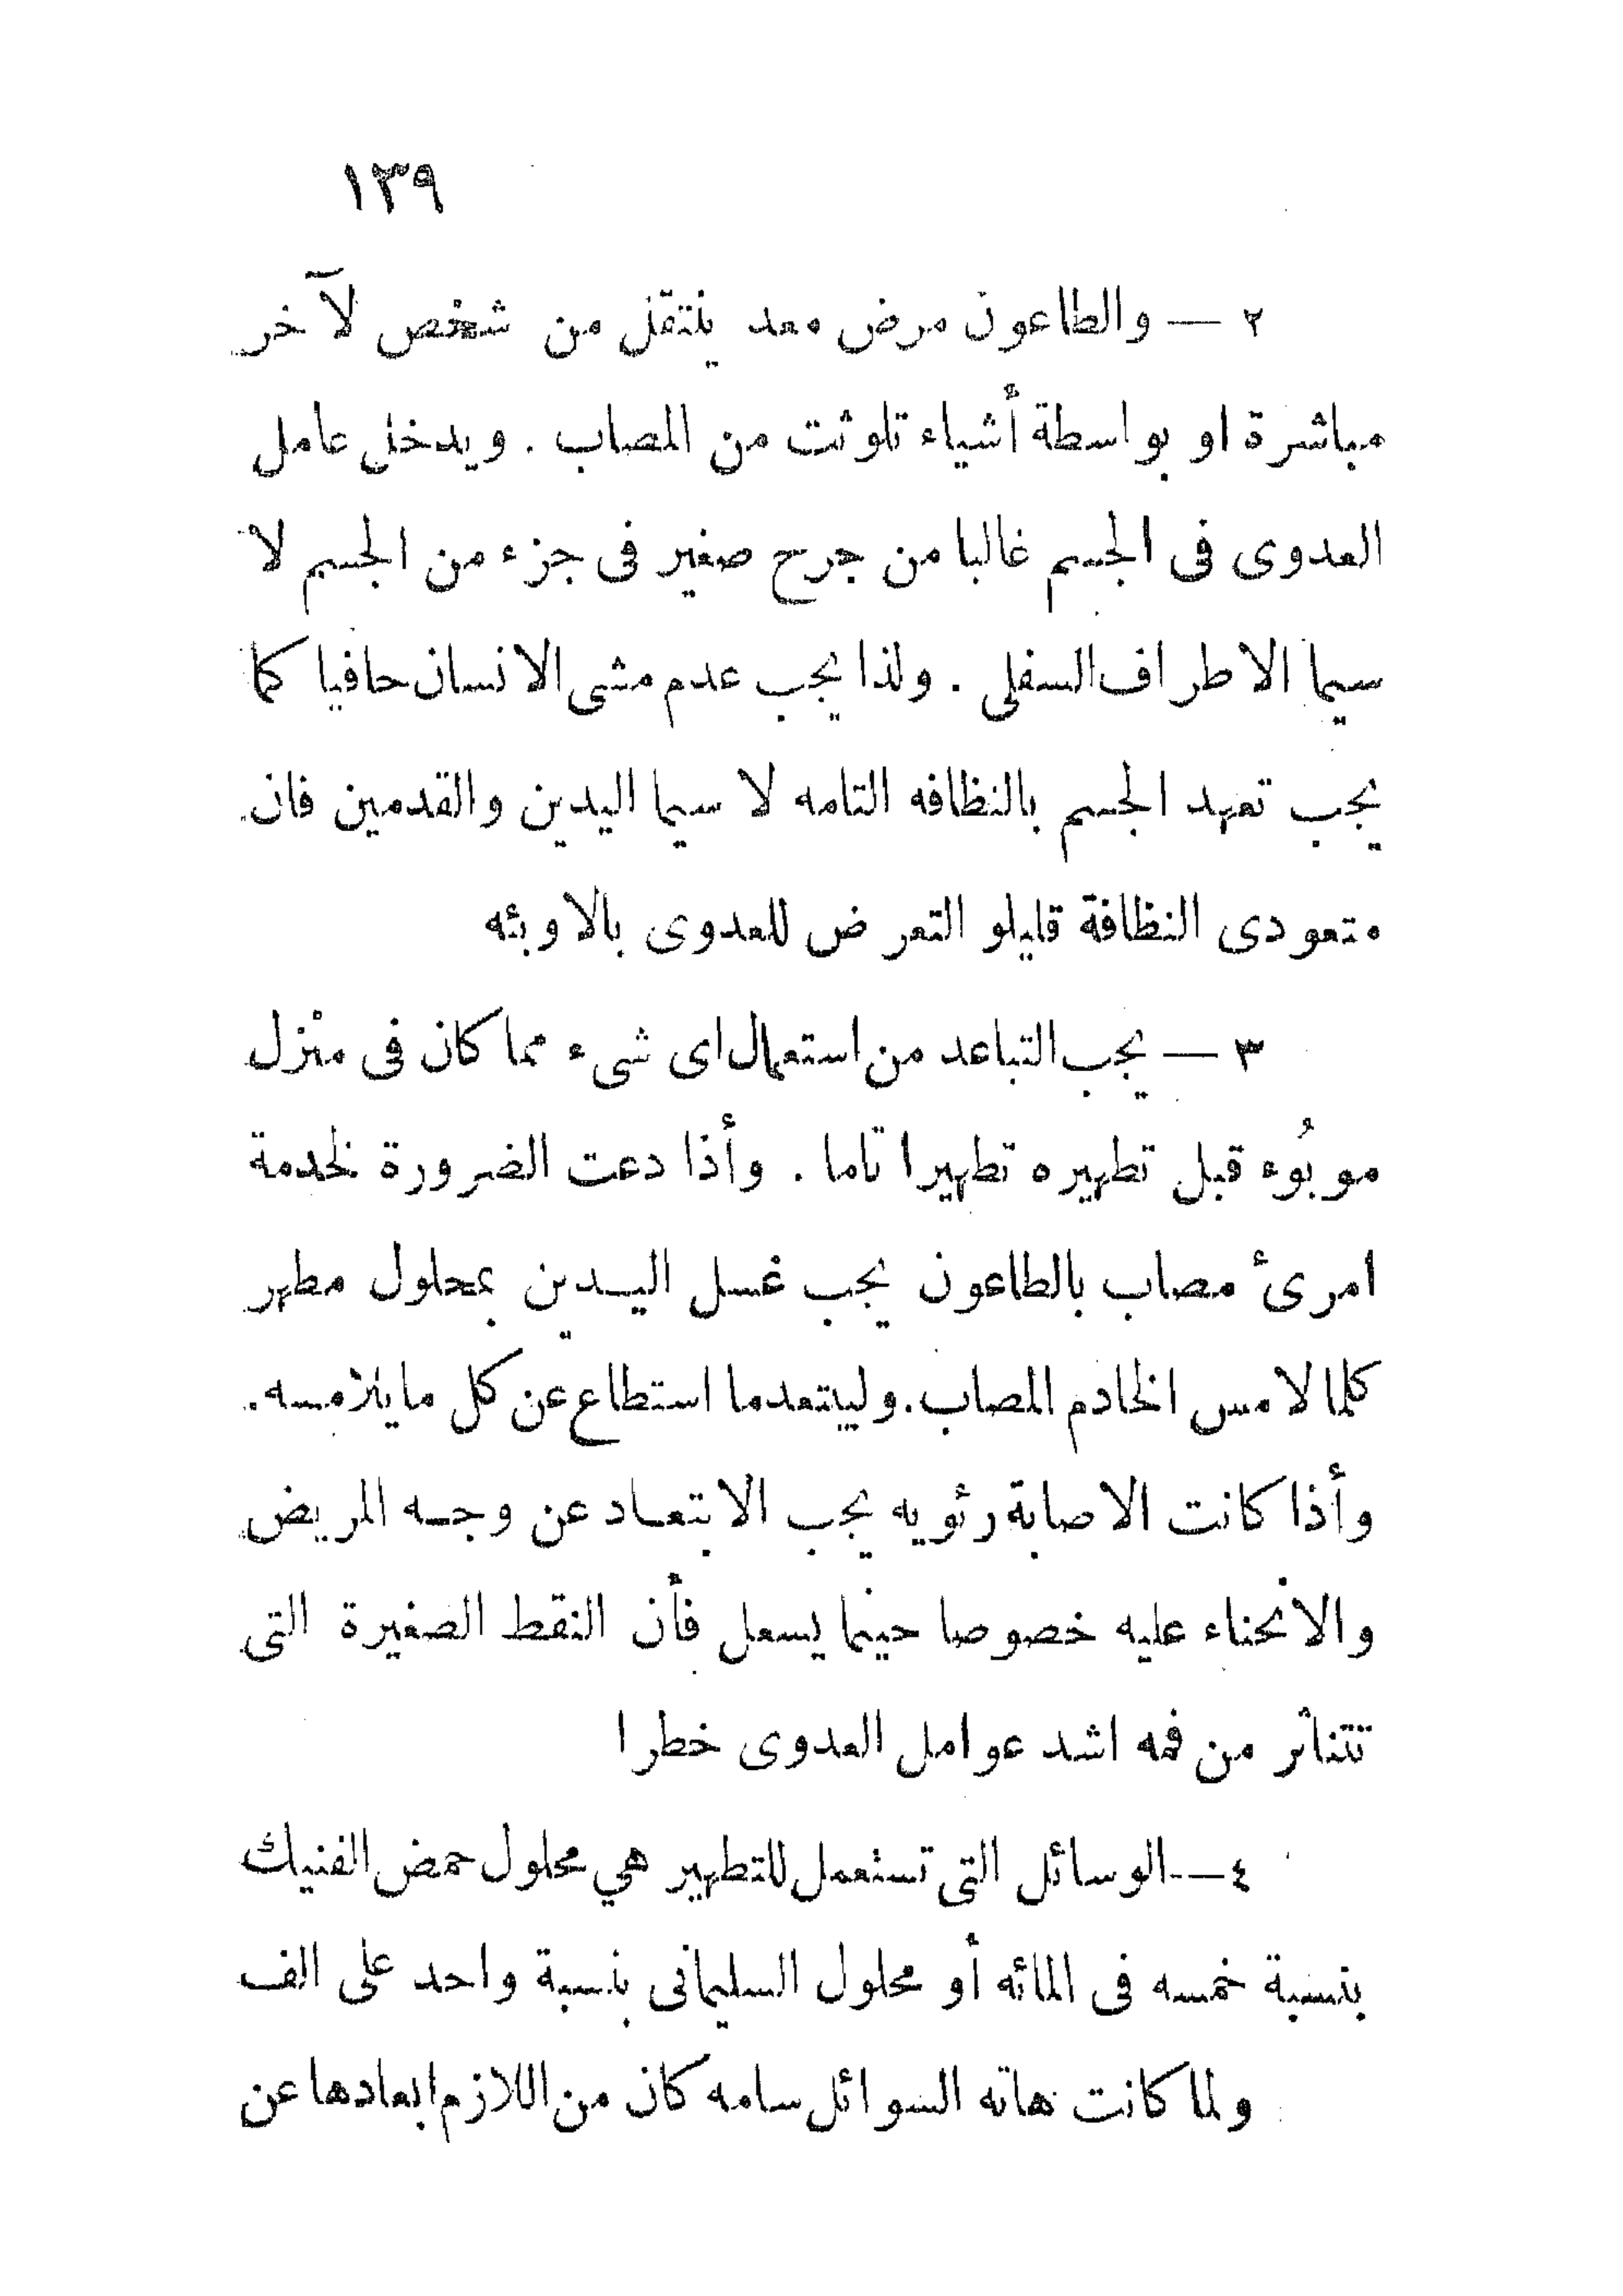 ١٣٩
٢ — والطاعون مرض معد ينتقل من شخص لآخر
مباشرة او بواسطة أشياء تلوثت من المصاب . ويدخل عامل
العدوى فى الجسم غالبا من جرح صغير فى جزء من الجسم لا
سيما الاطراف السفلى . ولذا يجب عدم مشى الانسان حافيا كما
يجب تعهد الجسم بالنظافه التامه لا سيما اليدين والقدمين فان
متعودى النظافة قليلو التعرض للعدوى بالاوبئه
٣ — يجب التباعد من استعمال اى شىء مما كان فى منزل
موبُوء قبل تطهيره تطهيرا تاما . وأذا دعت الضرورة لخدمة
امرئ مصاب بالطاعون يجب غسل اليدين بمحلول مطهر
كلما لامس الخادم المصاب . وليبتعد ما استطاع عن كل ما يلامسه .
وأذا كانت الاصابة رئويه يجب الابتعاد عن وجه المريض
والانحناء عليه خصوصا حينما يسعل فأن النقط الصغيرة التى
تتناثر من فمه اشد عوامل العدوى خطرا
٤ — الوسائل التى تستعمل للتطهير هي محلول حمض الفنيك
بنسبة خمسه فى المائه أو محلول السليمانى بنسبة واحد على الف
ولما كانت هاته السوائل سامه كان من اللازم ابعادها عن